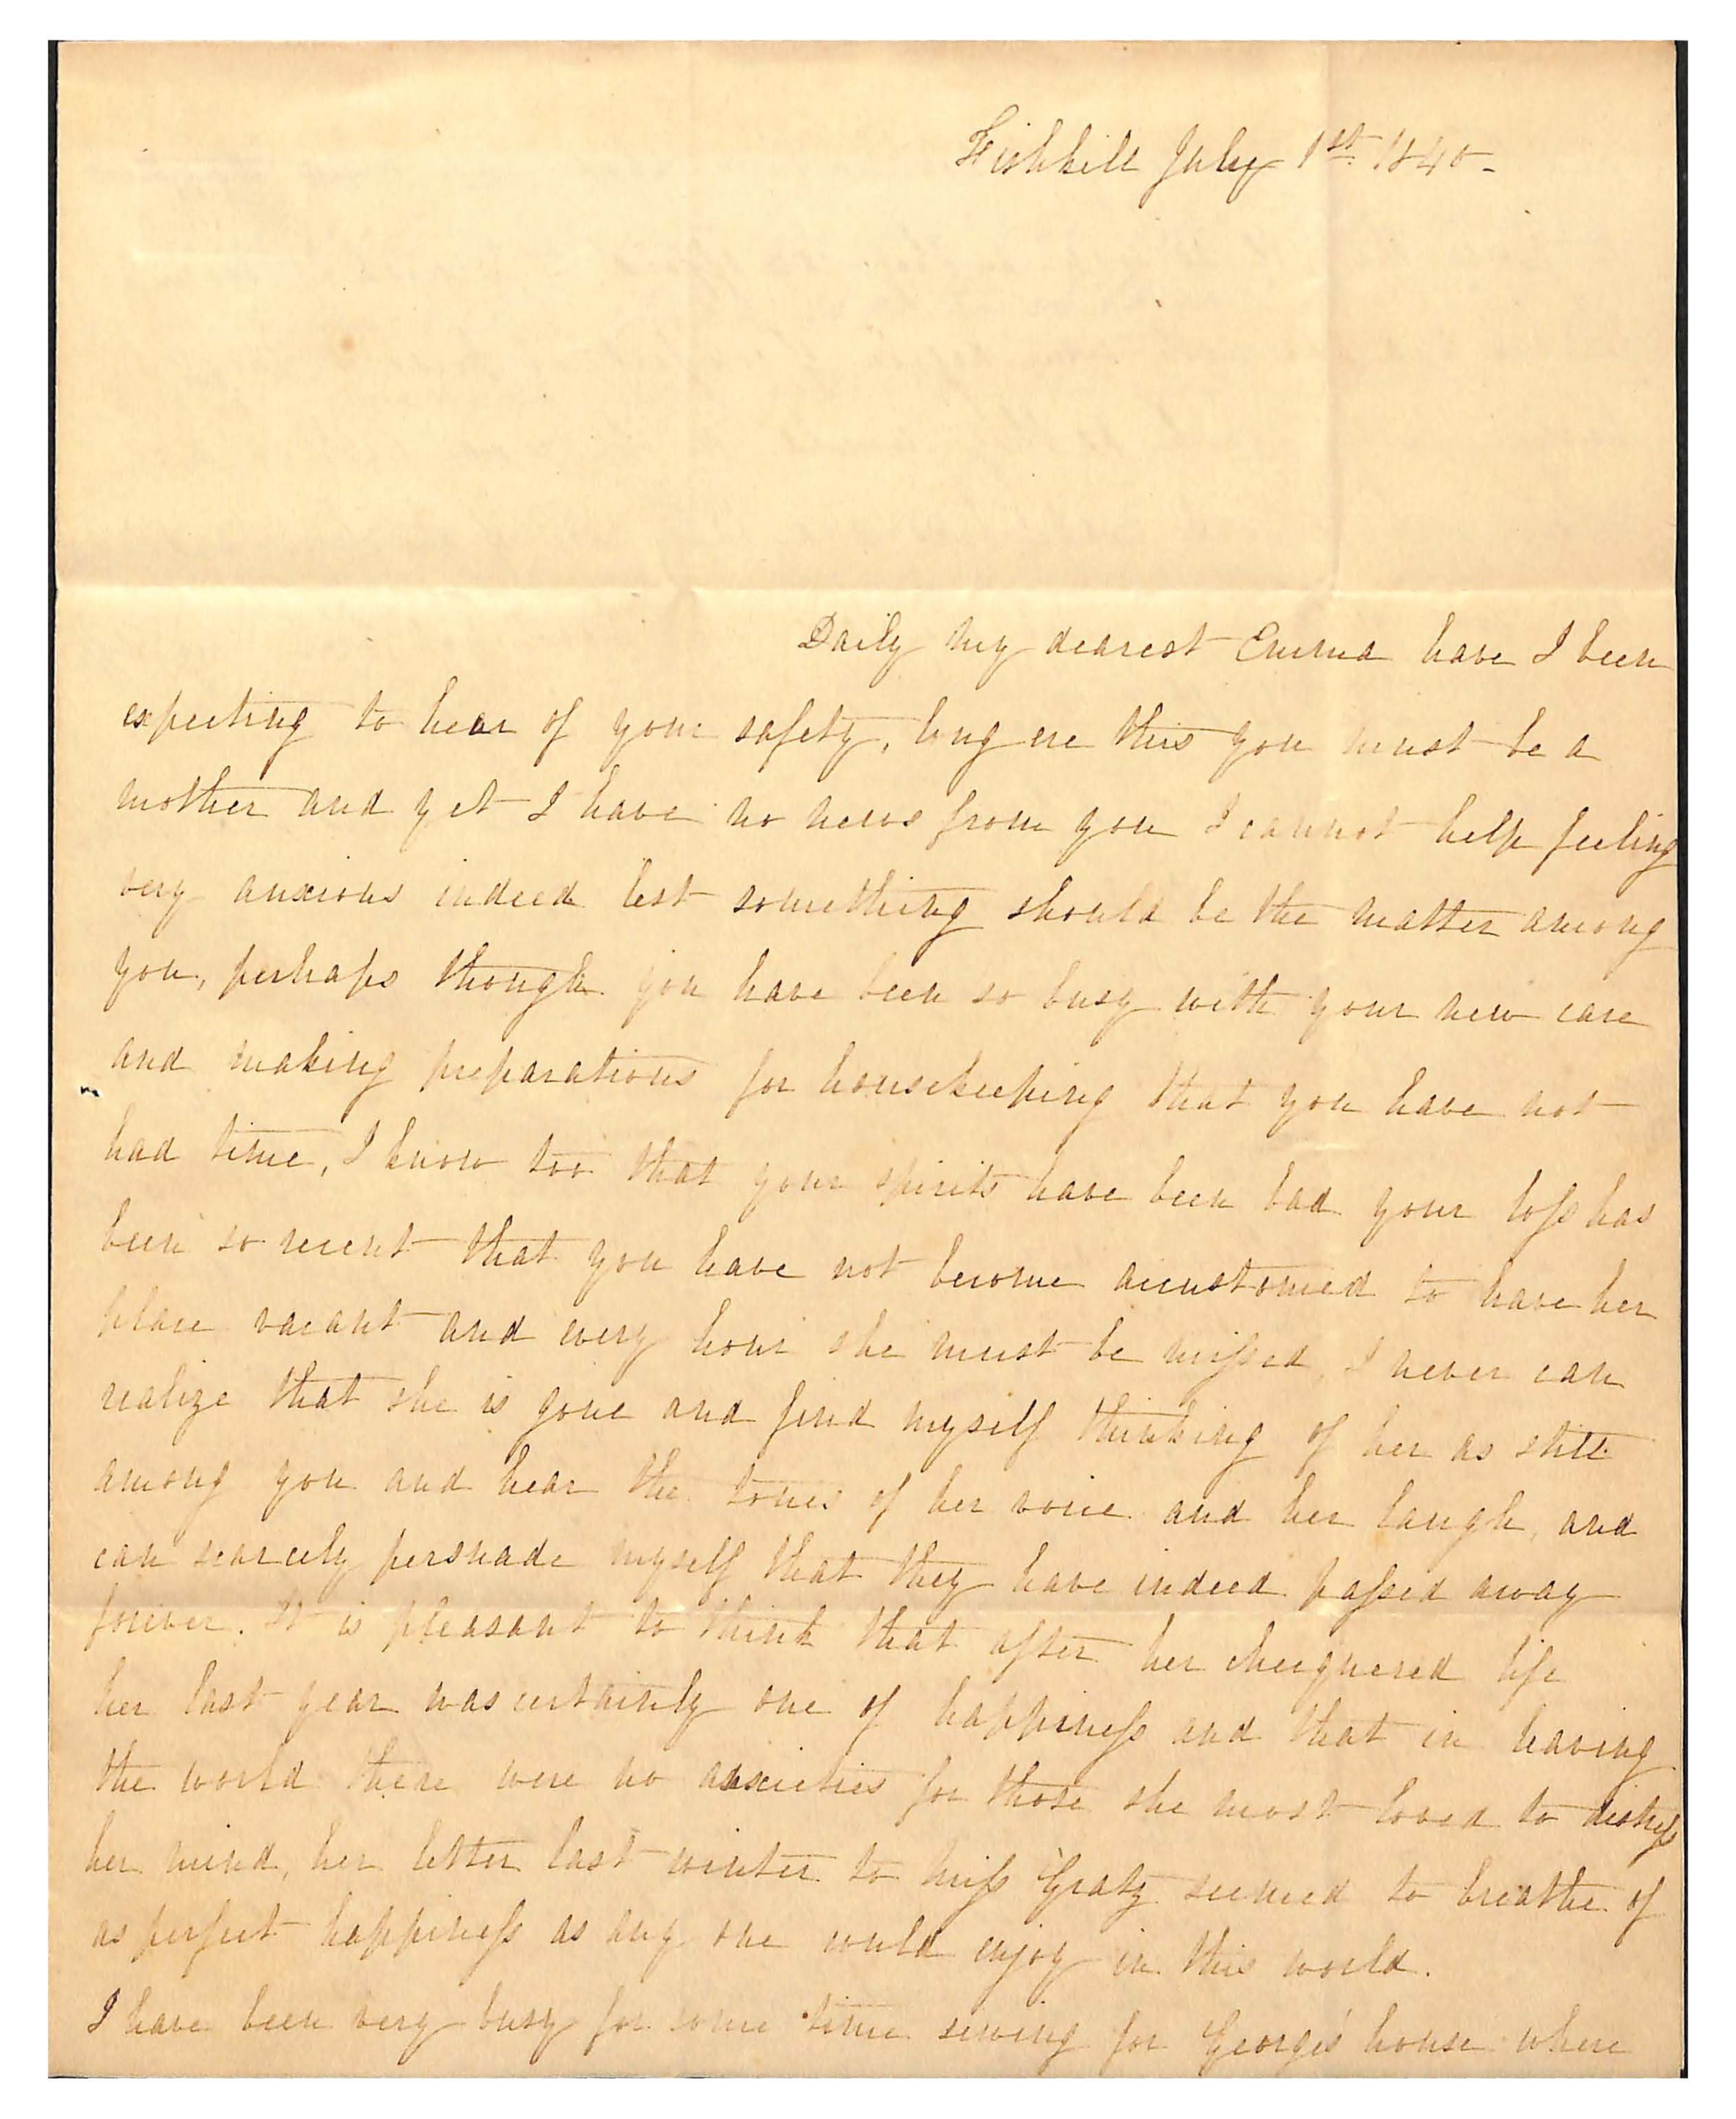 Fishkill July 1st 1840-
Daily my dearest Emma have I been
expecting to hear of your safety, long ere this you must be a
mother and yet I have no news from you I cannot help feeling
very anxious indeed lest something should be the matter among
you, perhaps though you have been so busy with your new care
and making preparations for housekeeping that you have not
had time, I know too that your spirits have been bad your loss has
been so recent that you have not become accustomed to have her
place vacant and every hour she must be missed, I never can
realize that she is gone and find myself thinking of her as still
among you and hear the tones of her voice and her laugh, and
can scarcely persuade myself that they have indeed passed away
forever. It is pleasant to think that after her chequered life
her last year was certainly one of happiness and that in leaving
the world there were no anxieties for those she most loved to distress
her mind, her letter last winter to Miss Gratz seemed to breathe of
as perfect happiness as any one could enjoy in this world.
I have been very busy for some time sewing for George's house where